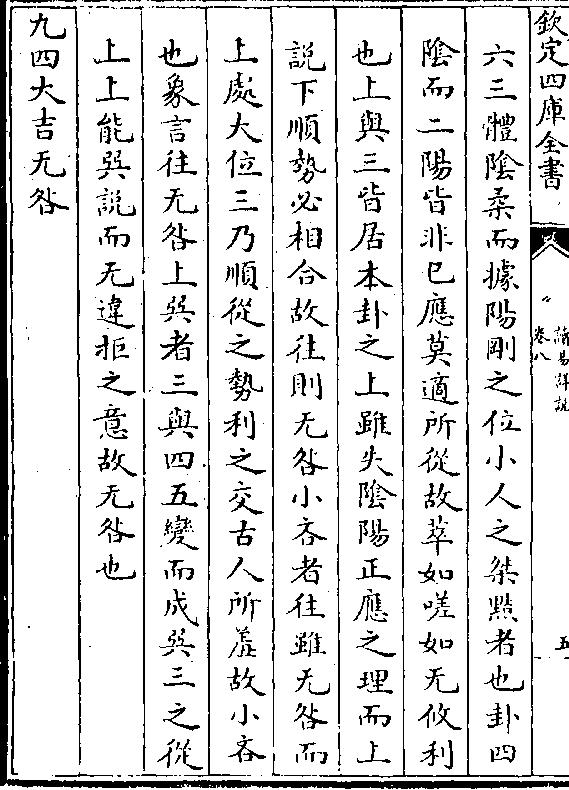 欽定四庫全書
讀易詳說
卷八
五
六三體陰柔而據陽剛之位小人之桀黠者也卦四
陰而二陽皆非已應莫適所從故萃如嗟如无攸利
也上與三皆居本卦之上雖失陰陽正應之理而上
說下順勢必相合故往則无咎小吝者往雖无咎而
上處大位三乃順從之勢利之交古人所羞故小吝
也象言往无咎上㢲者三與四五變而成㢲三之從
上上能㢲說而无違拒之意故无咎也
九四大吉无咎